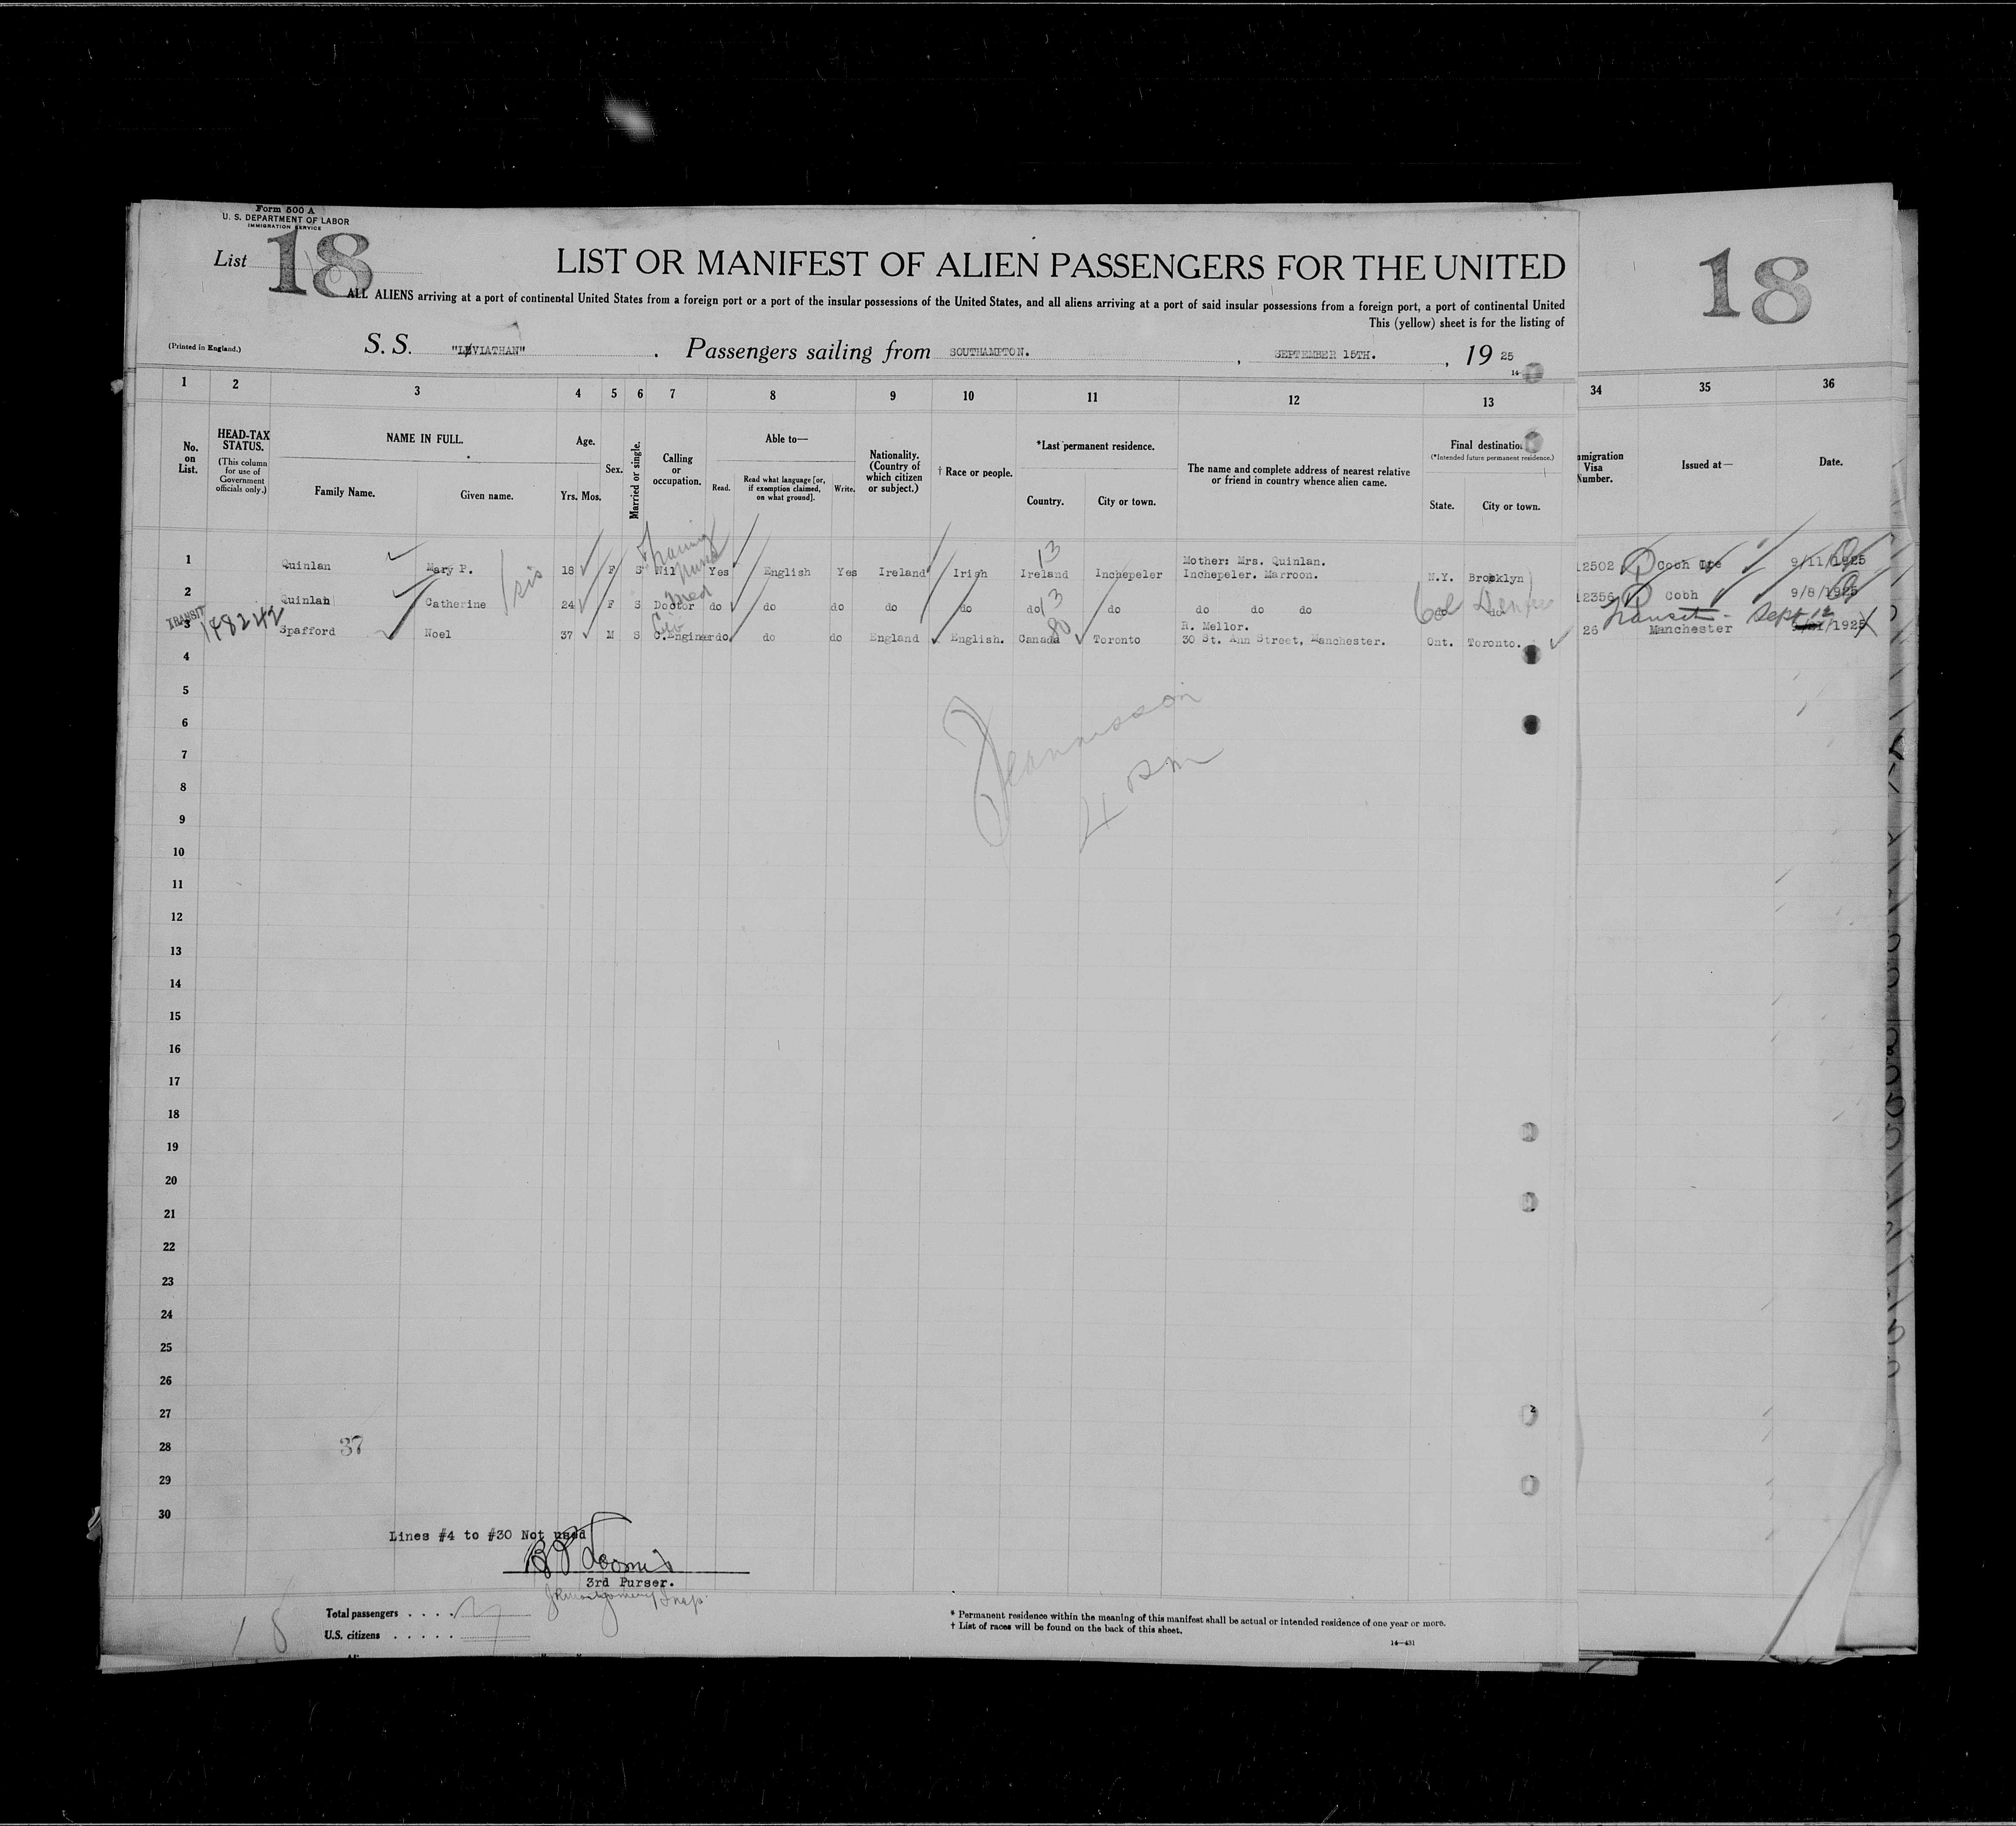 Form 500 A
U. S. DEPARTMENT OF LABOR
IMMIGRATION SERVICE
List 18
LIST OR MANIFEST OF ALIEN PASSENGERS FOR THE UNITED
18
ALL ALIENS arriving at a port of continental United States from a foreign port or a port of the insular possessions of the United States, and all aliens arriving at a port of said insular possessions from a foreign port, a port of continental United
This (yellow) sheet is for the listing of
(Printed in England.)
S. S. "LEVIATHAN" . Passengers sailing from SOUTHAMPTON. , SEPTEMBER 15TH. , 19 25
1 2 3 4 5 6 7 8 9 10 11 12 13 34 35 36
No. on List.
HEAD-TAX STATUS.
(This column for use of Government officials only.)
NAME IN FULL.
Family Name. Given name.
Age.
Yrs. Mos.
Sex.
Married or single.
Calling or occupation.
Able to—
Read. Read what language [or, if exemption claimed, on what ground]. Write.
Nationality. (Country of which citizen or subject.)
† Race or people.
*Last permanent residence.
Country. City or town.
The name and complete address of nearest relative or friend in country whence alien came.
Final destination
(*Intended future permanent residence.)
State. City or town.
mmigration Visa Number.
Issued at—
Date.
Training Nurse
13
1 Quinlan Mary P. sis 18 F S Nil Yes English Yes Ireland Irish Ireland Inchepeler Mother: Mrs. Quinlan. Inchepeler. Marroon. N.Y. Brooklyn 12502 Cobh 9/11/1925
Med
13
2 Quinlan Catherine 24 F S Doctor do do do do do do do do do do Col do 12356 Cobh 9/8/1925
TRANSIT
178242
Civ
80
Transit - Sept 12
3 Spafford Noel 37 M S C.Enginer do do do England English. Canada Toronto R. Mellor. 30 St. Ann Street, Manchester. Ont. Toronto. 26 Manchester /1925
4
5
6
7
8
9
10
11
12
13
14
15
16
17
18
19
20
21
22
23
24
25
26
27
28
29
30
4 pm
37
Lines #4 to #30 Not used
3rd Purser.
JR Montgomery Insp.
18
Total passengers . . . .
U.S. citizens . . . . .
* Permanent residence within the meaning of this manifest shall be actual or intended residence of one year or more.
† List of races will be found on the back of this sheet.
14—431